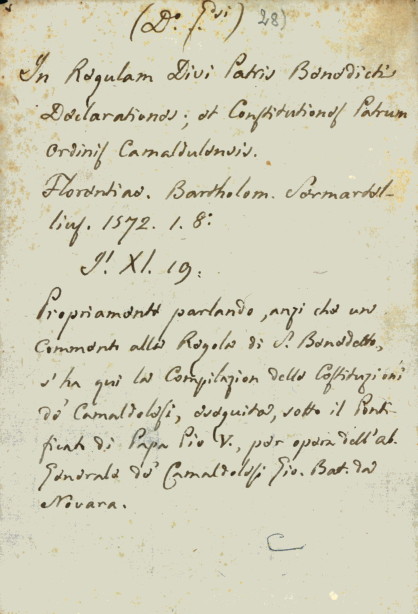 (Do. Gsi) 28)
In Regulam Divi Patris Benedictis
Declarationes; et Constitutiones Patrum
Ordinis Camaldulensis.
Florentiae. Bartholom. Sermartel-
lius. 1572. 1. 8:
XI. 19:
Propriamente parlando, anzi che un
Commento alla Regola di S. Benedetto,
s'ha qui la Compilazion delle Costituzioni
de' Camaldolesi, eseguita, sotto il Ponti-
ficato di Papa Pio V., per opera dell'Ab.
Generale de' Camaldolesi Gio. Bat. da
Novara.